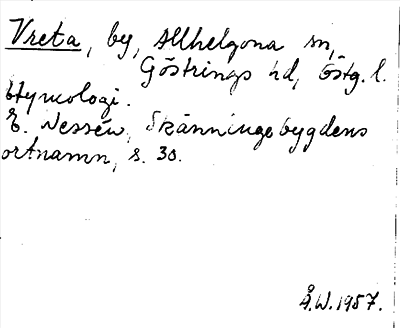 Vreta, by, Allhelgona sn,
Göstrings hd, Östg. l.
Etymologi.
E. Nessén, Skänningebygdens
ortnamn, s. 30.
Å.W. 1957.